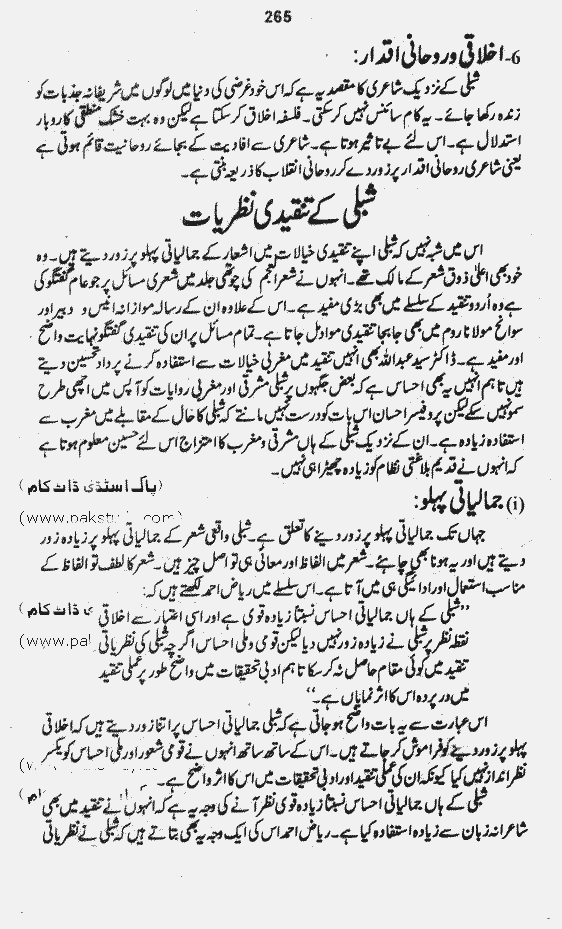 265
6۔ اخلاقی و روحانی اقدار:
شبلی کے نزدیک شاعری کا مقصد یہ ہے کہ اس خود غرضی کی دنیا میں لوگوں میں شریفانہ جذبات کو
زندہ رکھا جائے۔ یہ کام سائنس نہیں کر سکتی۔ فلسفہ اخلاق کر سکتا ہے لیکن وہ بہت خشک منطقی کاروبار
استدلال ہے۔ اس لئے بے تاثیر ہوتا ہے۔ شاعری سے افادیت کے بجائے روحانیت قائم ہوتی ہے
یعنی شاعری روحانی اقدار پر زور دے کر روحانی انقلاب کا ذریعہ بنتی ہے۔
شبلی کے تنقیدی نظریات
اس میں شبہ نہیں کہ شبلی اپنے تنقیدی خیالات میں اشعار کے جمالیاتی پہلو پر زور دیتے ہیں۔ وہ
خود بھی اعلیٰ ذوق شعر کے مالک تھے۔ انہوں نے شعر العجم کی چوتھی جلد میں شعری مسائل پر جو عام گفتگو کی
ہے وہ اُردو تنقید کے سلسلے میں بھی بڑی مفید ہے۔ اس کے علاوہ ان کے رسالہ موازانہ انیس و دبیر اور
سوانح مولانا روم میں بھی جابجا تنقیدی مواد مل جاتا ہے۔ تمام مسائل پر ان کی تنقیدی گفتگو نہایت واضح
اور مفید ہے۔ ڈاکٹر سید عبداللہ بھی انہیں تنقید میں مغربی خیالات سے استفادہ کرنے پر داد تحسین دیتے
ہیں تاہم انہیں یہ بھی احساس ہے کہ بعض جگہوں پر شبلی مشرقی اور مغربی روایات کو آپس میں اچھی طرح
سمو نہیں سکے لیکن پروفیسر احسان اس بات کو درست نہیں مانتے کہ شبلی کا حال کے مقابلے میں مغرب سے
استفادہ زیادہ ہے۔ ان کے نزدیک شبلی کے ہاں مشرقی و مغرب کا امتزاج اس لئے حسین معلوم ہوتا ہے
کہ انہوں نے قدیم بلاغتی نظام کو زیادہ چھیڑا ہی نہیں۔
(پاک اسٹڈی ڈاٹ کام)
(i) جمالیاتی پہلو:
(www.pakstu .com)
جہاں تک جمالیاتی پہلو پر زور دینے کا تعلق ہے۔ شبلی واقعی شعر کے جمالیاتی پہلو پر زیادہ زور
دیتے ہیں اور یہ ہونا بھی چاہئے۔ شعر میں الفاظ اور معانی ہی تو اصل چیز ہیں۔ شعر کا لطف تو الفاظ کے
مناسب استعمال اور ادائیگی ہی میں آتا ہے۔ اس سلسلے میں ریاض احمد لکھتے ہیں کہ:
”شبلی کے ہاں جمالیاتی احساس نسبتاً زیادہ قوی ہے اور اسی اعتبار سے اخلاقی
ی ڈاٹ کام)
نقطہ نظر پر شبلی نے زیادہ زور نہیں دیا لیکن قومی و ملی احساس اگرچہ شبلی کی نظریاتی
(www.pa
تنقید میں کوئی مقام حاصل نہ کر سکا تاہم ادبی تحقیقات میں واضح طور پر عملی تنقید
میں در پردہ اس کا اثر نمایاں ہے۔“
اس عبارت سے یہ بات واضح ہو جاتی ہے کہ شبلی جمالیاتی احساس پر اتنا زور دیتے ہیں کہ اخلاقی
پہلو پر زور دینے کو فراموش کر جاتے ہیں۔ اس کے ساتھ ساتھ انہوں نے قومی شعور اور ملی احساس کو یکسر
نظر انداز نہیں کیا کیونکہ ان کی عملی تنقید اور ادبی تحقیقات میں اس کا اثر واضح ہے۔
شبلی کے ہاں جمالیاتی احساس نسبتاً زیادہ قوی نظر آنے کی وجہ یہ ہے کہ انہوں نے تنقید میں بھی
شاعرانہ زبان سے زیادہ استفادہ کیا ہے۔ ریاض احمد اس کی ایک وجہ یہ بھی بتاتے ہیں کہ شبلی نے نظریاتی